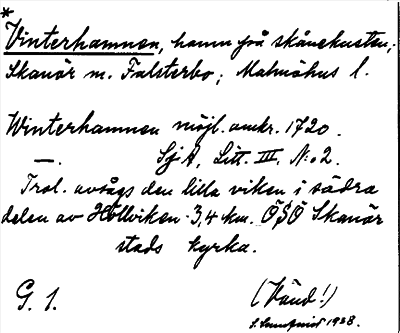 *
Vinterhamnen, hamn på skånekusten;
Skanör m. Falsterbo; Malmöhus l.
Winterhamnen möjl. omkr. 1720.
—. Sj A, Litt. III, N:o 2.
Trol. avsågs den lilla viken i södra
delen av Höllviken 3,4 km. ÖSÖ Skanör
stads kyrka.
G. 1. (Vänd!)
1938.